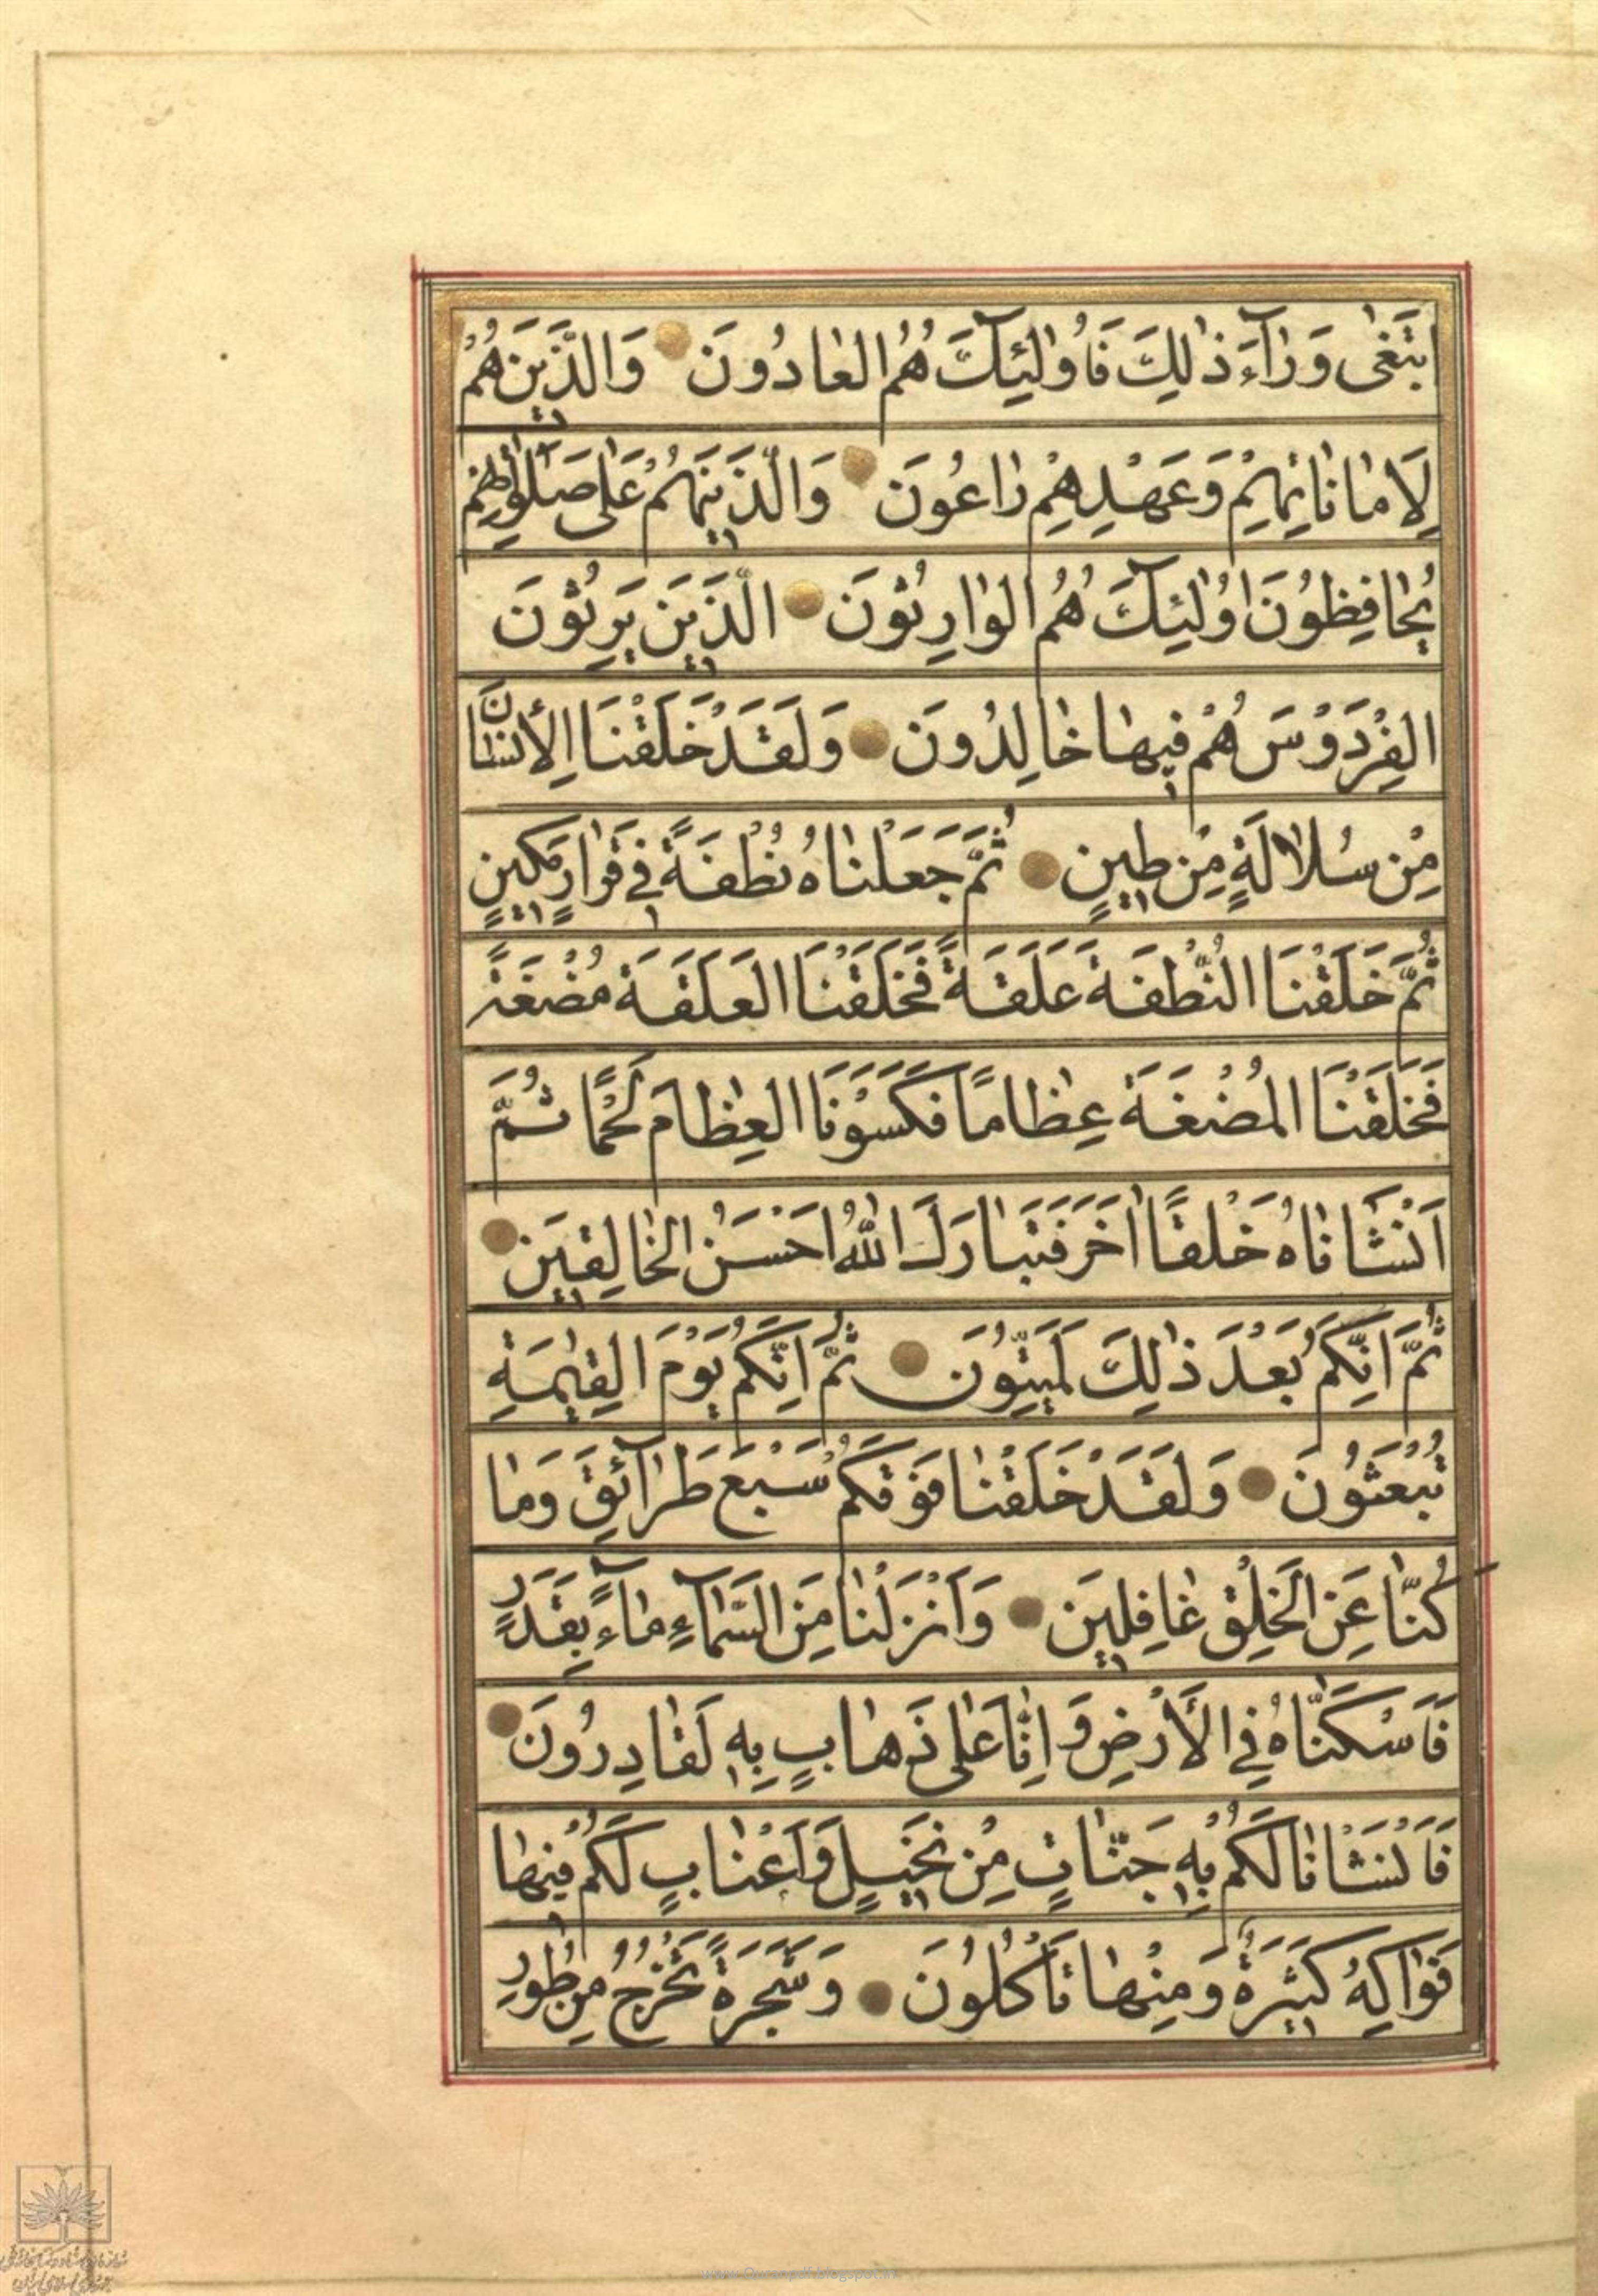 ابْتَغٰى وَرٰآءَ ذٰلِكَ فَاُولٰئِكَ هُمُ العٰادُونَ وَالَّذِينَ هُمْ
لِاَمٰانٰاتِهِمْ وَعَهْدِهِمْ رٰاعُونَ وَالَّذِينَ هُمْ عَلٰى صَلَوٰاتِهِمْ
يُحٰافِظُونَ اُولٰئِكَ هُمُ الوٰارِثُونَ الَّذِينَ يَرِثُونَ
الفِرْدَوْسَ هُمْ فِيهٰا خٰالِدُونَ وَلَقَدْ خَلَقْنَا الْاِنْسٰانَ
مِنْ سُلٰالَةٍ مِنْ طِينٍ ثُمَّ جَعَلْنٰاهُ نُطْفَةً فِي قَرٰارٍ مَكِينٍ
ثُمَّ خَلَقْنَا النُّطْفَةَ عَلَقَةً فَخَلَقْنَا العَلَقَةَ مُضْغَةً
فَخَلَقْنَا المُضْغَةَ عِظٰامًا فَكَسَوْنَا العِظٰامَ لَحْمًا ثُمَّ
اَنْشَاْنٰاهُ خَلْقًا اٰخَرَ فَتَبٰارَكَ اللّٰهُ اَحْسَنُ الخٰالِقِينَ
ثُمَّ اِنَّكُمْ بَعْدَ ذٰلِكَ لَمَيِّتُونَ ثُمَّ اِنَّكُمْ يَوْمَ القِيٰمَةِ
تُبْعَثُونَ وَلَقَدْ خَلَقْنٰا فَوْقَكُمْ سَبْعَ طَرٰآئِقَ وَمٰا
كُنّٰا عَنِ الخَلْقِ غٰافِلِينَ وَاَنْزَلْنٰا مِنَ السَّمٰآءِ مٰآءً بِقَدَرٍ
فَاَسْكَنّٰاهُ فِي الْاَرْضِ وَاِنّٰا عَلٰى ذَهٰابٍ بِهِ لَقٰادِرُونَ
فَاَنْشَاْنٰا لَكُمْ بِهِ جَنّٰاتٍ مِنْ نَخِيلٍ وَاَعْنٰابٍ لَكُمْ فِيهٰا
فَوٰاكِهُ كَثِيرَةٌ وَمِنْهٰا تَاْكُلُونَ وَشَجَرَةً تَخْرُجُ مِنْ طُورِ